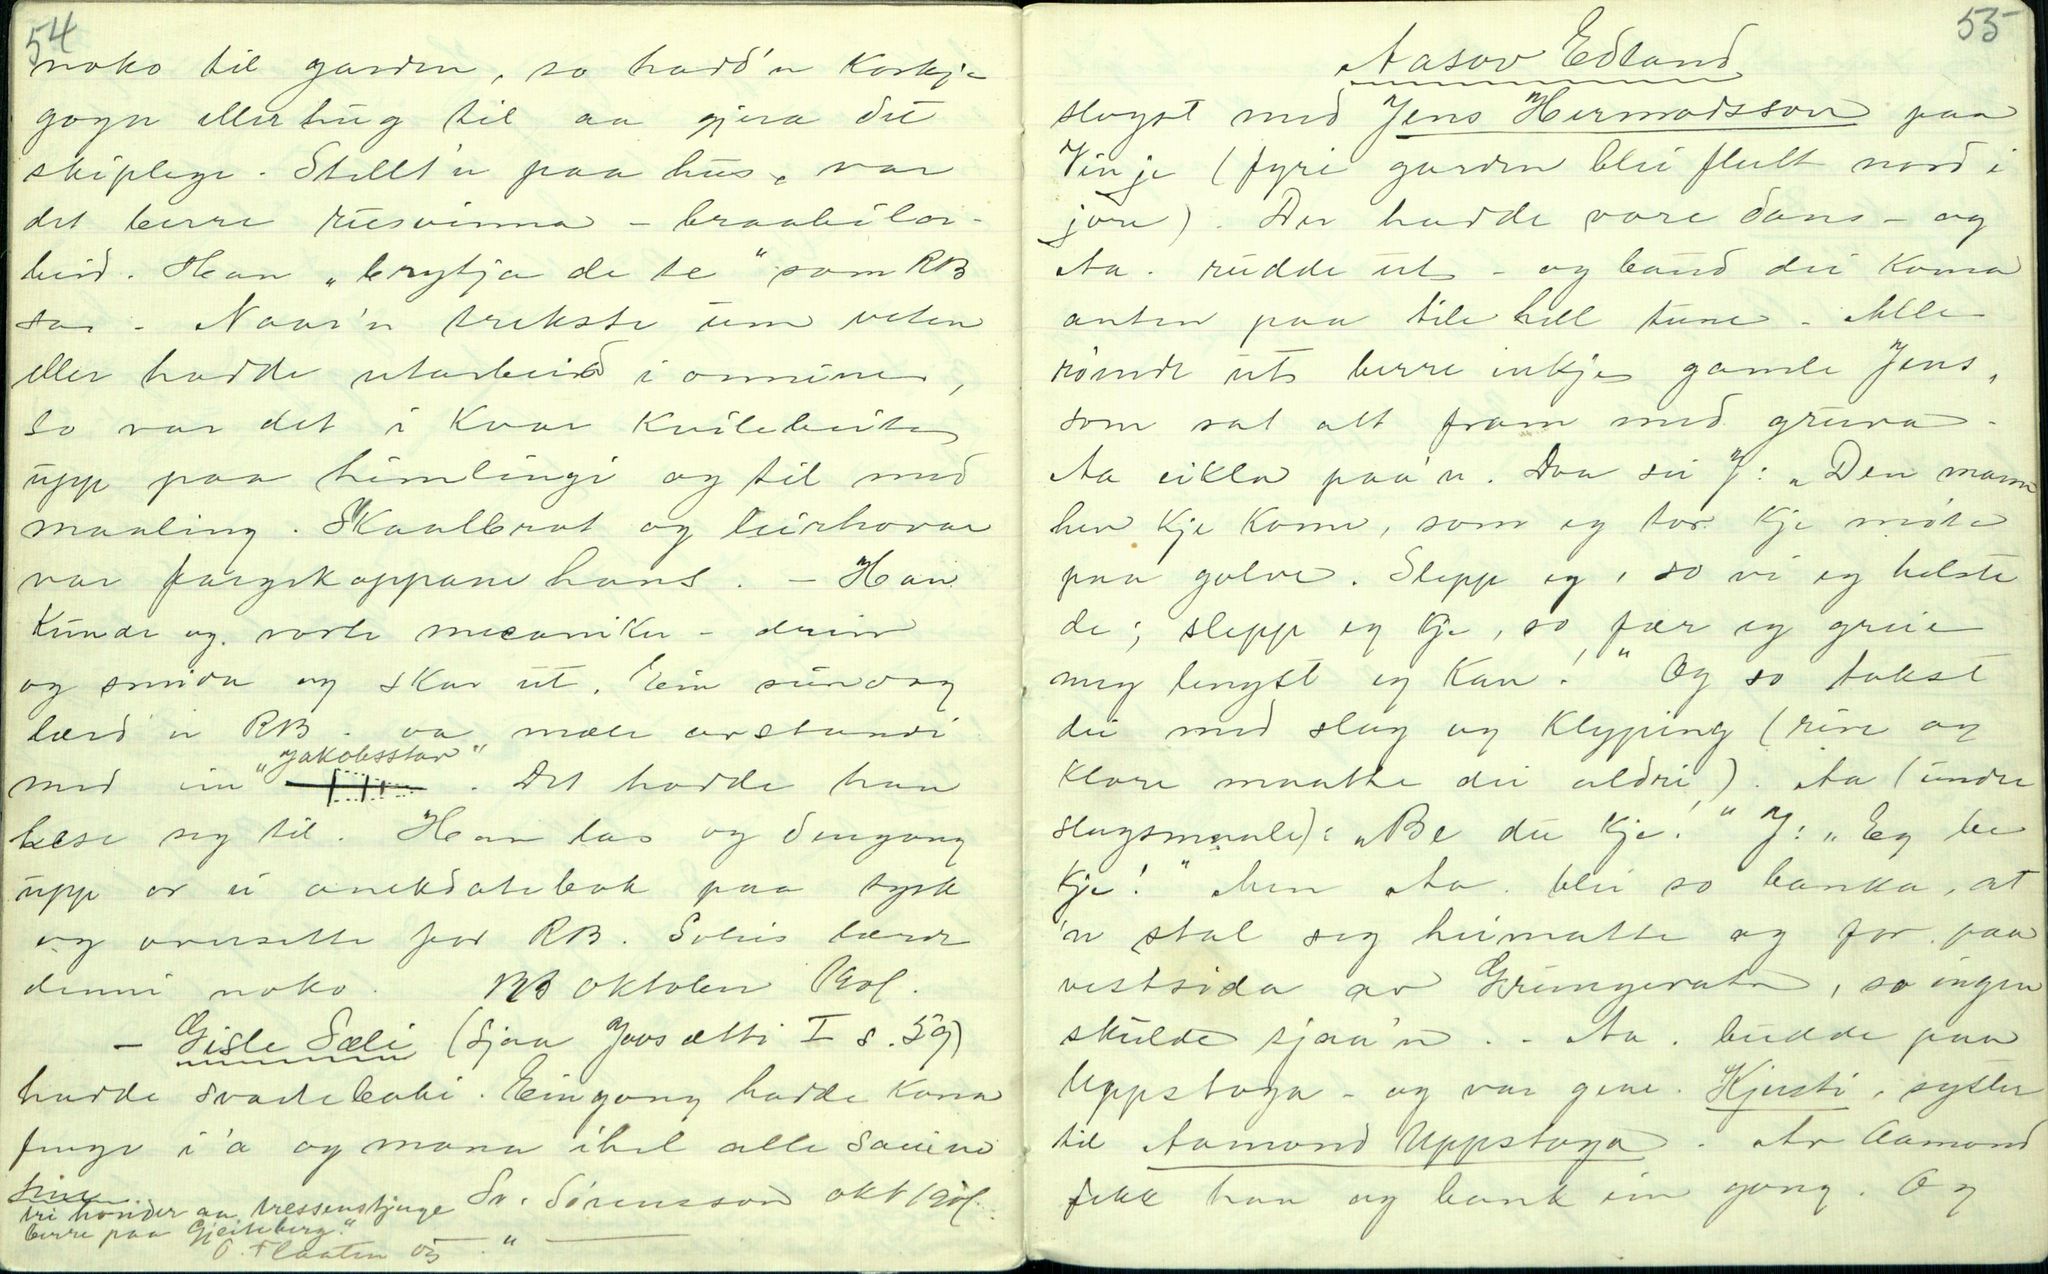 54
noko til garden, so hadd'n korkje
gogn eller hug til aa gjera det
skiplege. Stellt'n paa hus, var
det berre rusvinna - braabilar-
beid. Han "brytja de te" som RB
sa. Naar'n trekste um veten
eller hadde utarbeid i onnine,
so var det i kvar kvilebeite
upp paa himlingi og til med
maaling. Skaalbrot og leirhovar
var fargekoppane hans. - Han
kunde og vorte mecaniker - dreiv
og smida og skar ut. Ein sundag
lærd'n RB. aa mæle avstandi
med ein "Jakobsstav". Det hadde han
lese seg til. Han las og eingong
upp or ei anekdotebok paa tysk
og oversette for RB. Soleis lærde
denni noko. RB oktober 1901.
- Gisle Sæli (Sjaa Jaas ætti I s. 59)
hadde svarteboki. Eingong hadde kona
fenge i 'a og mana ihel alle sauine
sine. Sv. Sørensson okt 1901.
tri honder aa tressenstjuge
berre paa Gjeiteberg."
O. Flaaten og "
55
Aasov Edland
slogst med Jens Hermodsson paa
Vinje (fyri garden blei flutt nord i
jore). Der hadde vore dans - og
Aa. rudde ut - og baud dei koma
anten paa tile hell tune. Alle
rømde ut berre inkje gamle Jens,
som sat att fram med gruva.
Aa eikla paa'n. Daa sei J: "Den mann
hev kje kome, som eg tor kje møte
paa golve. Slepp eg, so vi eg helste
de; slepp eg kje, so fær eg greie
meg lengst eg kan!" Og so tokst
dei med slag og klyping (rive og
klore maatte dei aldri). Aa (undre
slagsmaale): "Be du kje!" J: "Eg be
kje!" Men Aa. blei so banka, at
'n stal seg heimatte og for paa
vestsida av Grungevatn, so ingen
skulde sjaa'n. - Aa. budde paa
Uppstoga - og var gine. Kjersti, syster
til Aamond Uppstoga. Av Aamond
fekk han og bank ein gong. Og